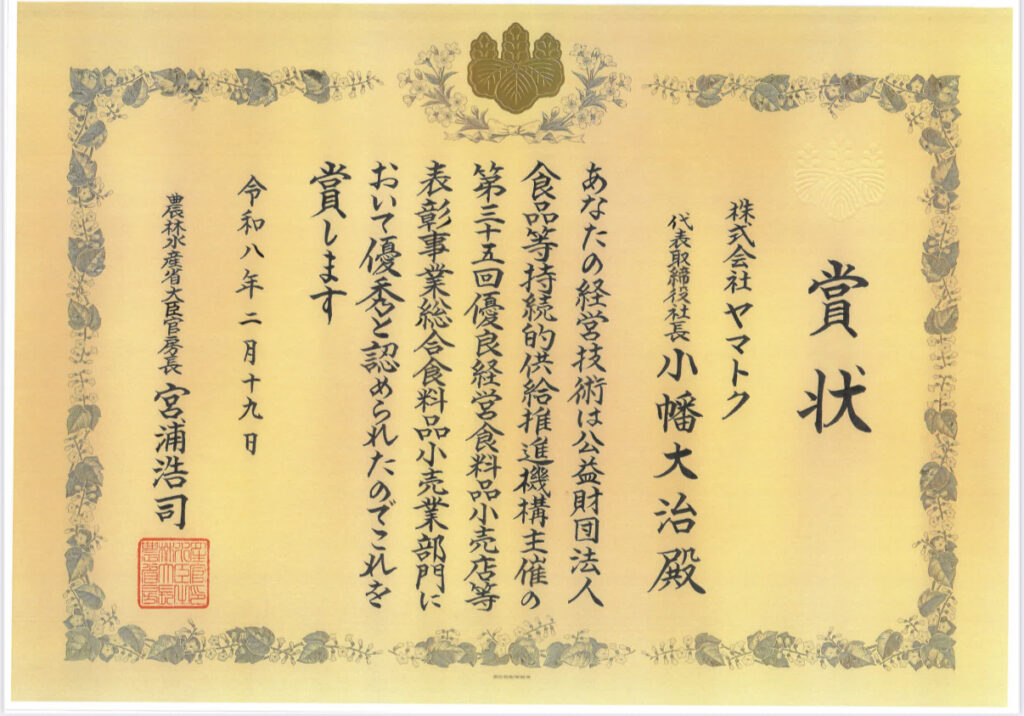 賞状
株式会社ヤマトク
代表取締役社長 小幡大治殿
あなたの経営技術は公益財団法人
食品等持続的供給推進機構主催の
第三十五回優良経営食料品小売店等
表彰事業総合食料品小売業部門に
おいて優秀と認められたのでこれを
賞します
令和八年二月十九日
農林水産省大臣官房長 宮浦浩司